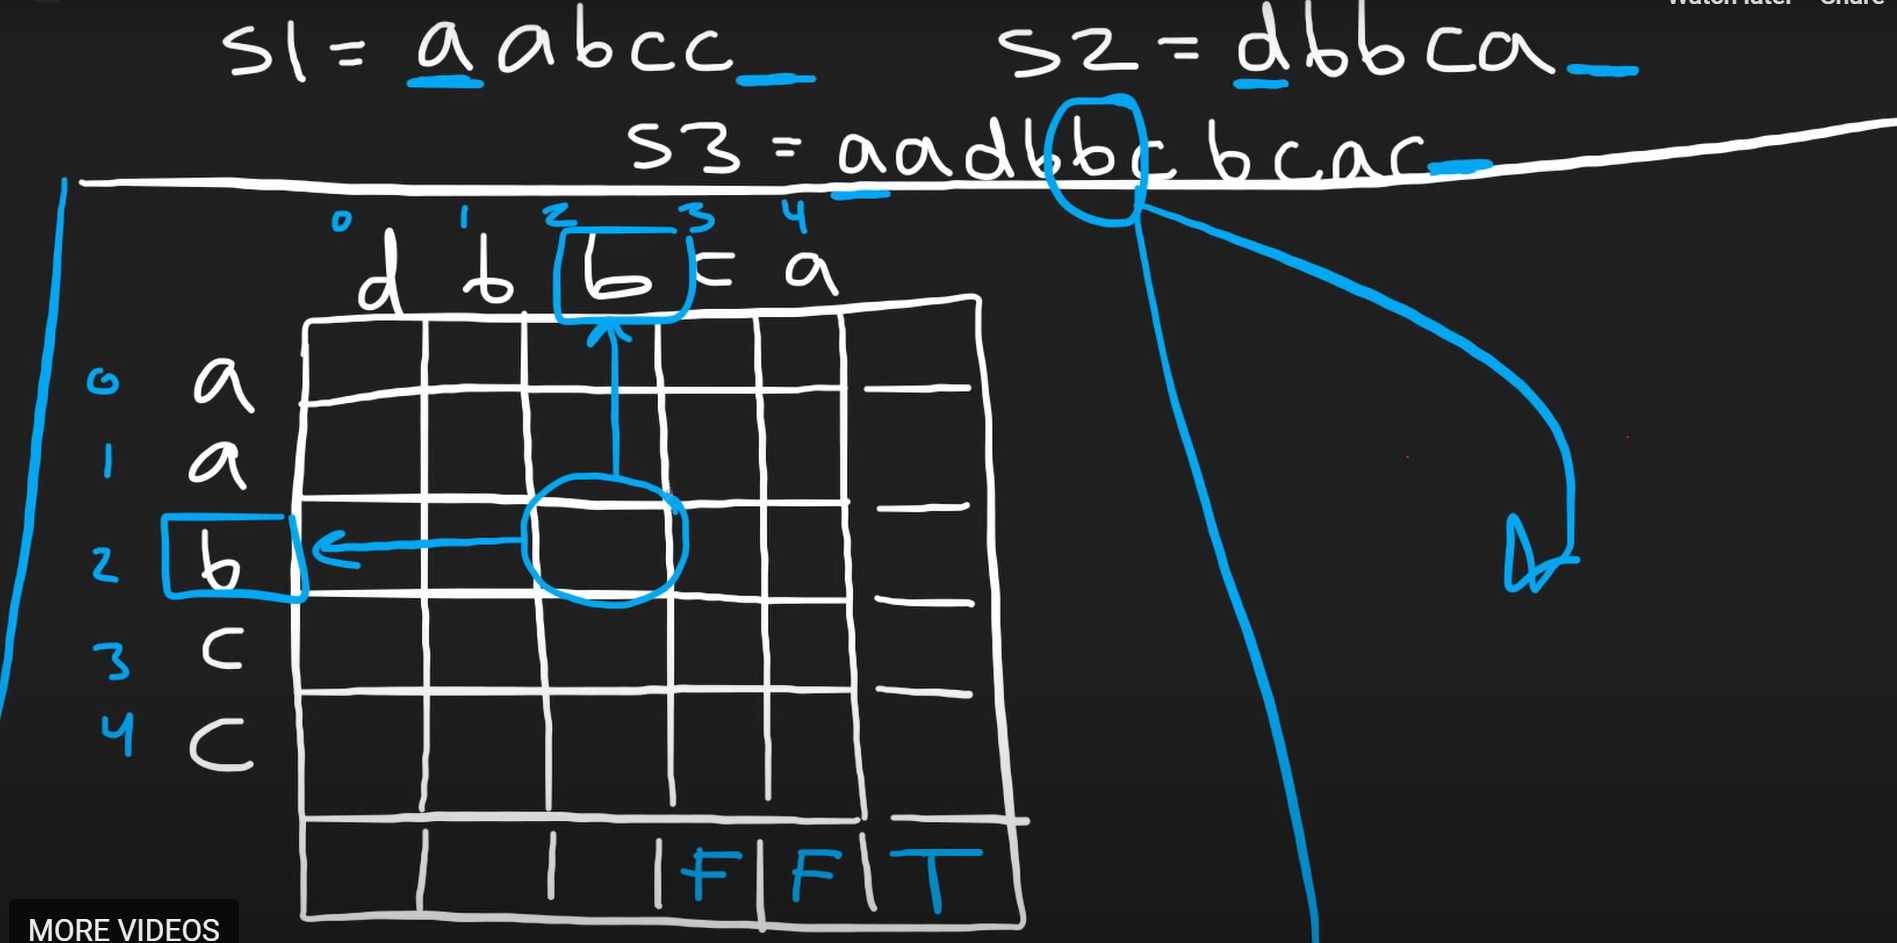 Watch later Share
s1 = aabcc s2 = dbbca
s3 = aadbbcbcac
0 1 2 3 4
d b b c a
0 a
1 a
2 b
3 c
4 c
F F T
MORE VIDEOS